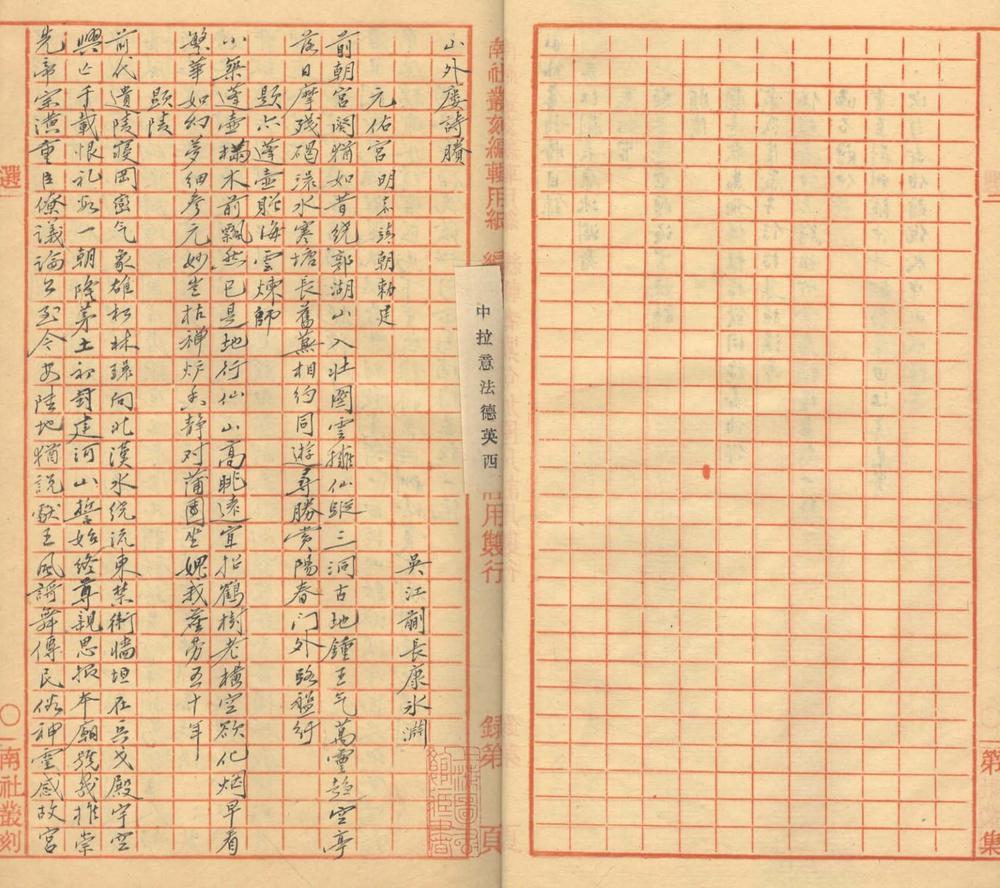 山外廔詩賸
吳江蒯長康冰淵
元佑宮明嘉靖朝勅建
前朝宮闕猶如昔繞郭湖山入壯圖雲擁仙蹤三洞古地鍾王气萬靈趨空亭
落日摩殘碣渌水寒塘長舊蕪相約同遊尋勝賞陽春門外路縈紆
題六蓬壺贈海雲煉師
小築蓬壺橘木前飄然已是地行仙山高眺遠宜招鶴樹老橫空欲化烟早看
繁華如幻夢細參元妙豈枯禪炉香静对蒲團坐媿我塵勞五十年
顯陵
前代遺陵寢岡巒气象雄松林環向北漢水繞流東禁衛牆坦在兵戈殿宇空
興亡千載恨礼數一朝隆茅土初封建河山誓始終尊親思报本廟號幾推崇
先帝宗潢重臣僚議論公至今安陸地猶説獻王風謌舞傳民俗神靈感故宮
南社叢刻編輯用紙
西英德法意拉中
用製行
錄第
頁
選
南社叢刻
第
集